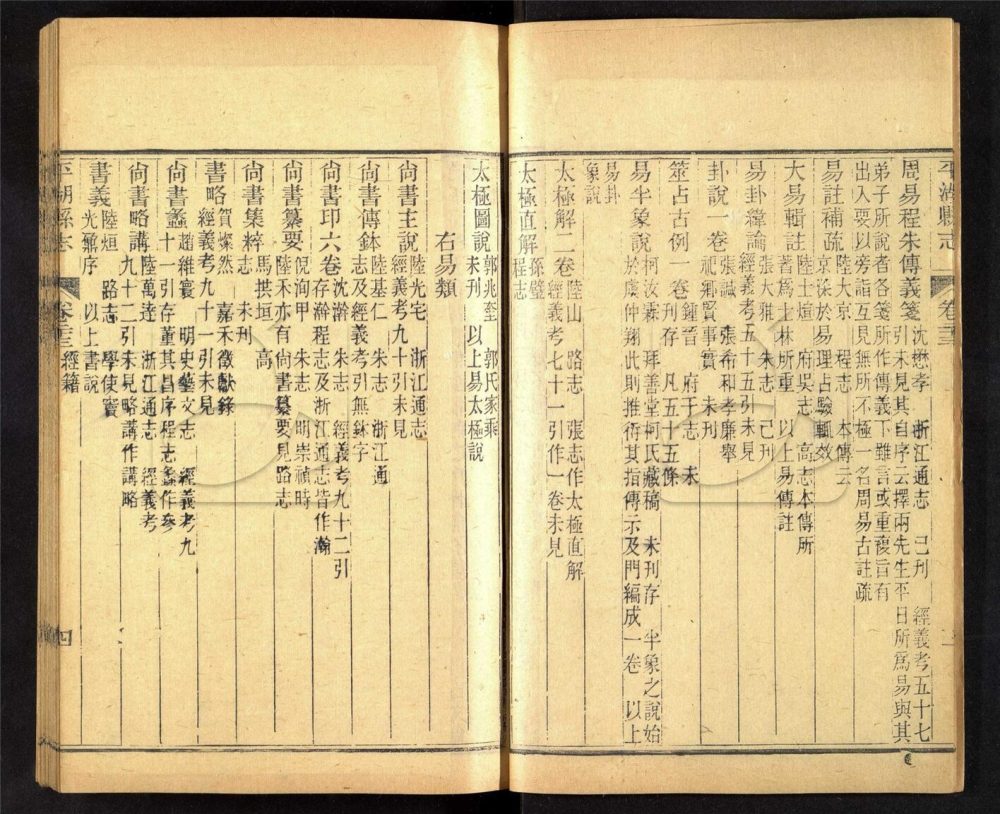 平湖縣志 卷二十三
周易程朱傳義箋 沈懋孝 浙江通志 已刊 經義考五十七
引未見其自序云擇兩先生平日所爲易與其
弟子所說者各箋所作傳義下雖言或重複旨有
出入要以旁詣互見無所不極一名周易古註疏
易註補疏 陸大京 程志 本傳云
京深於易理占驗輒效
大易輯註 陸士煊 府吳志 高志本傳所
著爲士林所重 以上易傳註
易卦緯論 張大雅 朱志 己刊
經義考五十五引未見
卦說一卷 張諴 張布和孝廉舉
祀鄉賢事實 未刊
筮占古例一卷 鍾晉 府于志 未
刊存 凡五十五條
易半象說 柯汝霖 拜善堂柯氏藏稿 未刊存 半象之說始
於虞仲翔此則推衍其指傳示及門編成一卷 以上
易卦
象說
太極解二卷 陸山 路志 張志作太極直解
經義考七十一引作一卷未見
太極直解 孫璧
程志
太極圖說 郭兆奎 郭氏家乘
未刊 以上易太極說
右易類
尚書主說 陸光宅 浙江通志
經義考九十引未見
尚書傳鉢 陸基仁 朱志 浙江通
志及經義考引無鉢字
尚書印六卷 沈瀚 朱志 經義考九十二引
存瀚程志及浙江通志皆作瀚
尚書纂要 倪洵甲 朱志 明崇禎時
陸禾亦有尚書纂要見路志
尚書集粹 馬拱垣 高
志 未刊
書略 賀燦然 嘉禾徵獻錄
經義考九十一引未見
尚書蠡 趙維寰 明史藝文志 經義考九
十一引存董其昌序程志蠡作參
尚書略講 陸萬達 浙江通志 經義考
九十二引未見略講作講略
書義 陸烜 路志 學使竇
光鼐序 以上書說
平湖縣志 卷二十三 經籍 四